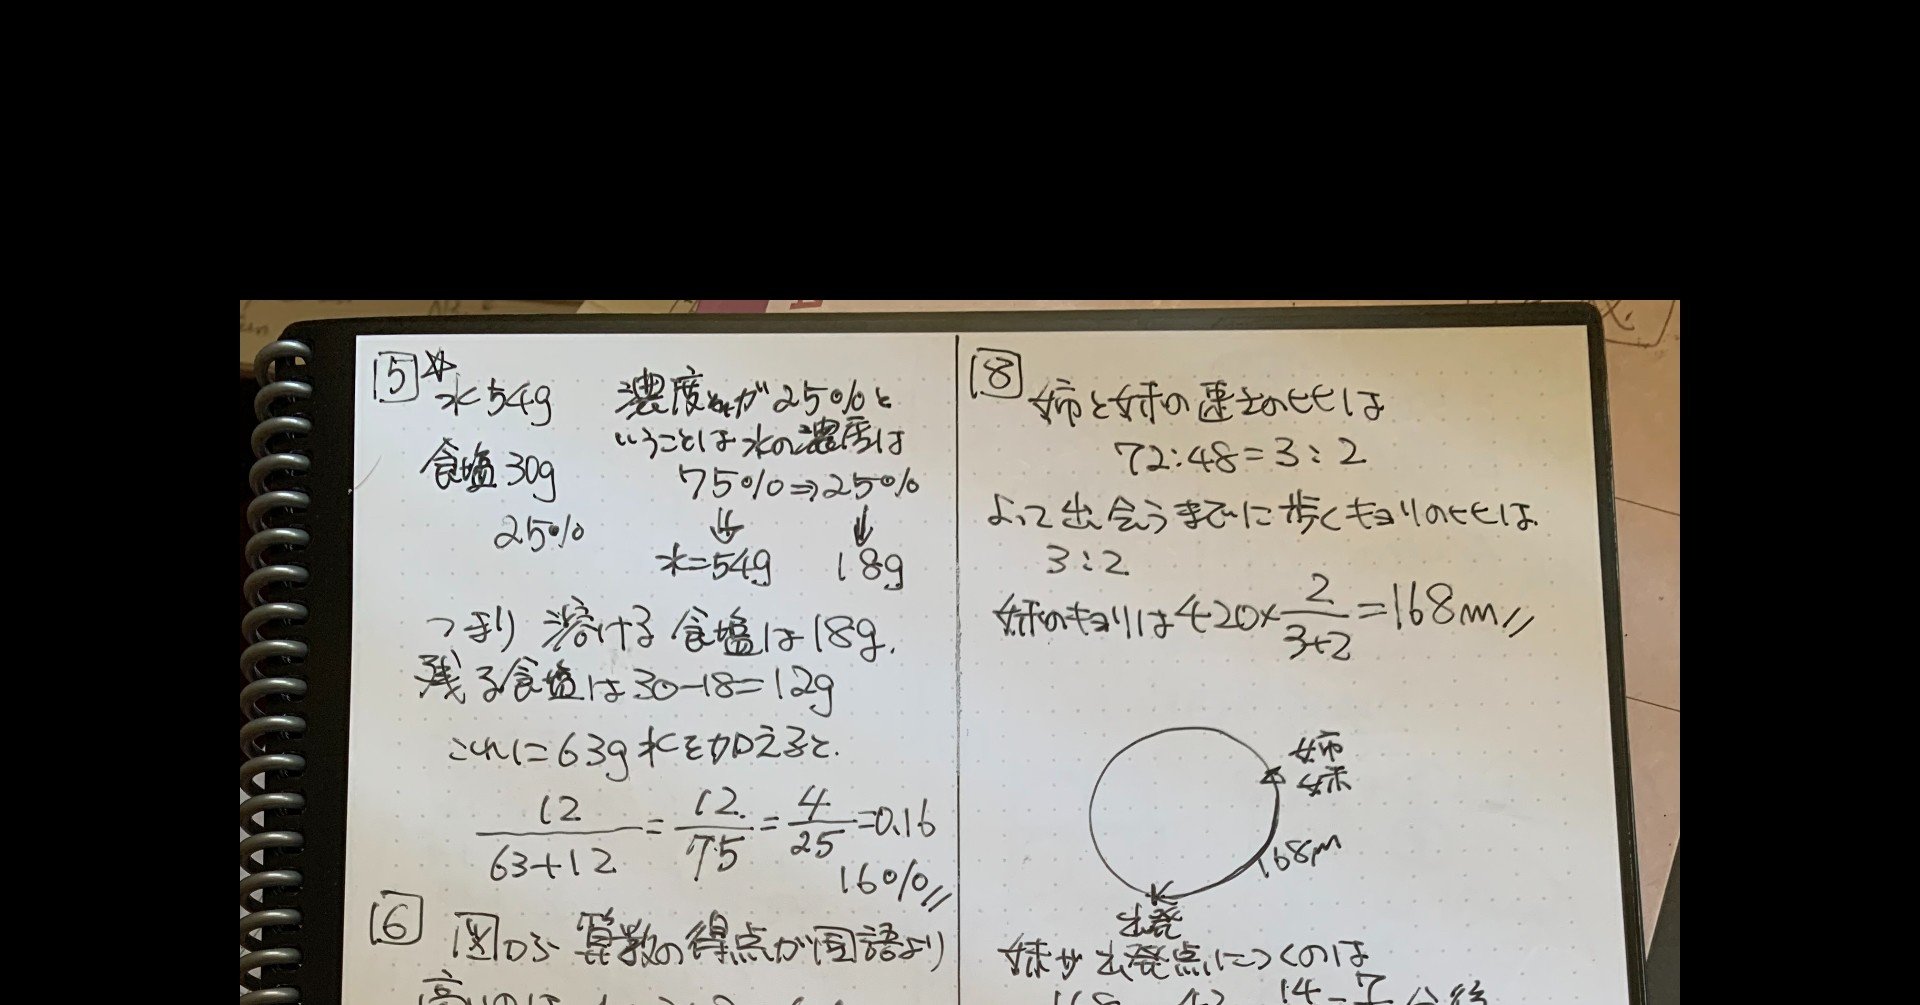 5
水54g
食塩30g
25%
濃度が25%と
いうことは水の濃度は
75%⇒25%
↓ ↓
水=54g 18g
つまり 溶ける食塩は18g.
残る食塩は30-18=12g
これに63g水を加えると.
12/(63+12) = 12/75 = 4/25 =0.16
16%
6
図から 算数の得点が国語より
8
姉と妹の速さの比は
72:48=3:2
よって出会うまでに歩くキョリの比は
3:2
妹のキョリは420×2/(3+2)=168m
姉
妹
168m
出発
妹が出発点につくのは